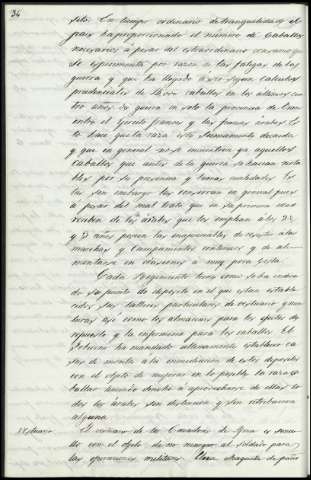 34
sito. En tiempo ordinario de tranquilidad el
pais ha proporcionado el número de Caballos
necesarios á pesar del extraordinario consumo que
se experimenta por razon de las fatigas de la
guerra y que ha llegado á ser segun calculos
prudenciales de caballos en los ultimos cua
tro años de guerra en solo la provincia de Oran
entre el Ejercito frances y las fuerzas árabes. Es
to hace que la raza esté sumamente decaida
y que en general no se encuentren ya aquellos
Caballos que antes de la guerra se hacian nota
bles por su presencia y buenas cualidades. Es
tas sin embargo las conservan en general pues
á pesar del mal trato que en su primera edad
reciben de los árabes que los emplean á los 2½
y 3 años parecen los mas capaces de resistir á las
marchas y Campamentos continuos y de ali
mentarse en ocasiones á muy poca costa.
Cada Regimiento tiene como se ha indica
do su punto de deposito en el que estan estable
cidos sus talleres particulares de vestuario y mon
turas así como los almacenes para los efectos de
repuesto y la enfermeria para los caballos. El
Gobierno ha mandado ultimamente establecer ca
sas de monta á la inmediacion de estos depositos
con el objeto de mejorar en lo posible la raza ca
ballar teniendo derecho á aprovecharse de ellas to
dos los árabes sin distincion y sin retribucion
alguna.
Vestuario El vestuario de los Cazadores de África es senci
llo con el objeto de no recargar al soldado para
las operaciones militares. Una chaqueta de paño